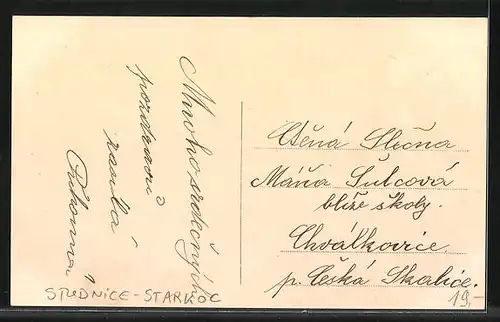 Mnoho srdečných
pozdravů
zasílá
Ctěná Slečna
Máňa Šulcová
blíže školy.
Chválkovice
p. Česká Skalice.
STUDNICE-STARKOČ
19,-